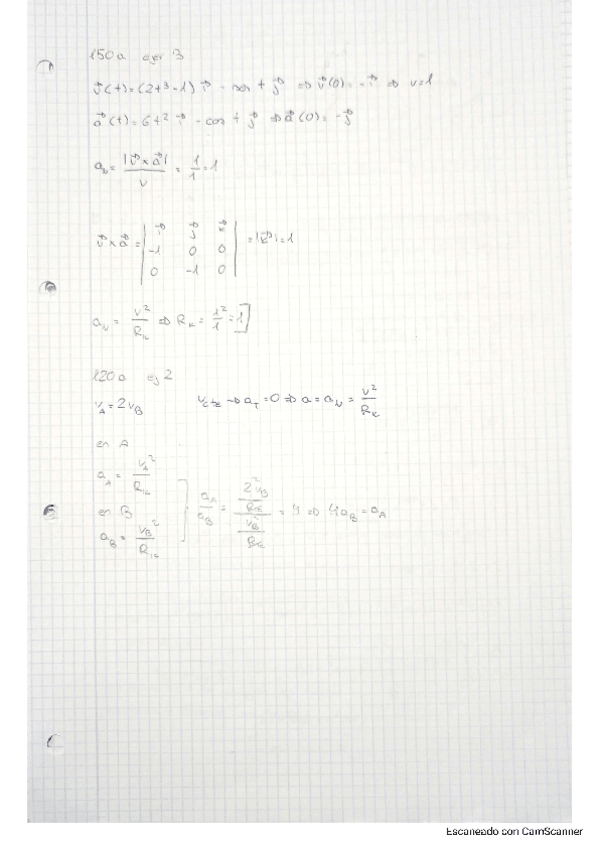 150a ejer 3
v⃗(t)=(2t³-1) i⃗ - sen t j⃗ ⇒ v⃗(0) = -i⃗ ⇒ v=1
a⃗(t)=6t² i⃗ - cos t j⃗ ⇒ a⃗(0)= -j⃗
a_N = |v⃗ x a⃗| / v = 1/1 = 1
v⃗ x a⃗ = | i⃗ j⃗ k⃗ | = |k⃗| = 1
-1 0 0
0 -1 0
a_N = v²/R_k ⇒ R_k = 1²/1 = 1
120a ej 2
v_A = 2v_B v cte → a_T = 0 ⇒ a = a_N = v²/R_k
en A
a_A = v_A²/R_k
en B
a_B = v_B²/R_k
a_A/a_B = (2²v_B²/R_k)/(v_B²/R_k) = 4 ⇒ 4a_B = a_A
Escaneado con CamScanner